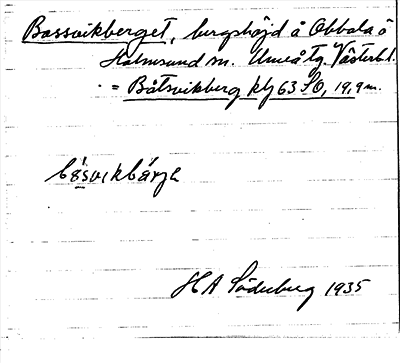 Bassvikberget, bergshöjd å Obbola ö
Holmsund sn. Umeå tg. Västerb l.
= Båtsvikberg kbl 63 SO, 19,9 m.
HA Söderberg 1935